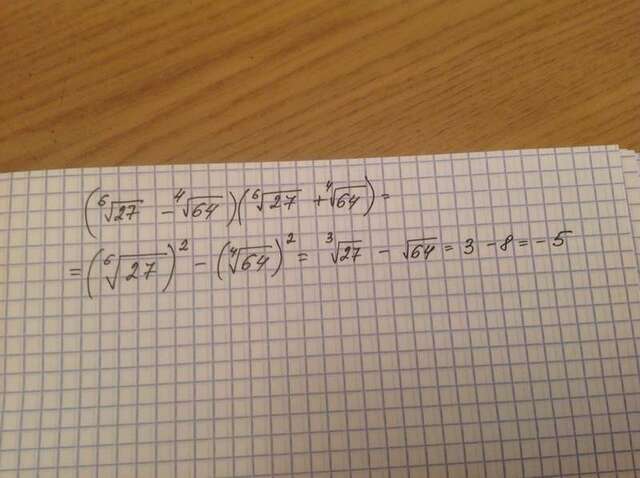 (⁶√27 − ⁴√64)(⁶√27 + ⁴√64) =
= (⁶√27)² − (⁴√64)² = ³√27 − √64 = 3 − 8 = −5